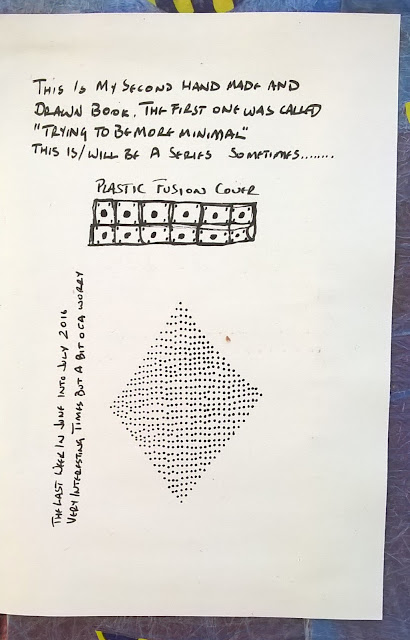 THIS IS MY SECOND HAND MADE AND
DRAWN BOOK. THE FIRST ONE WAS CALLED
"TRYING TO BE MORE MINIMAL"
THIS IS/WILL BE A SERIES SOMETIMES........
PLASTIC FUSION COVER
THE LAST WEEK IN JUNE INTO JULY 2016
VERY INTERESTING TIMES BUT A BIT OCA WORRY